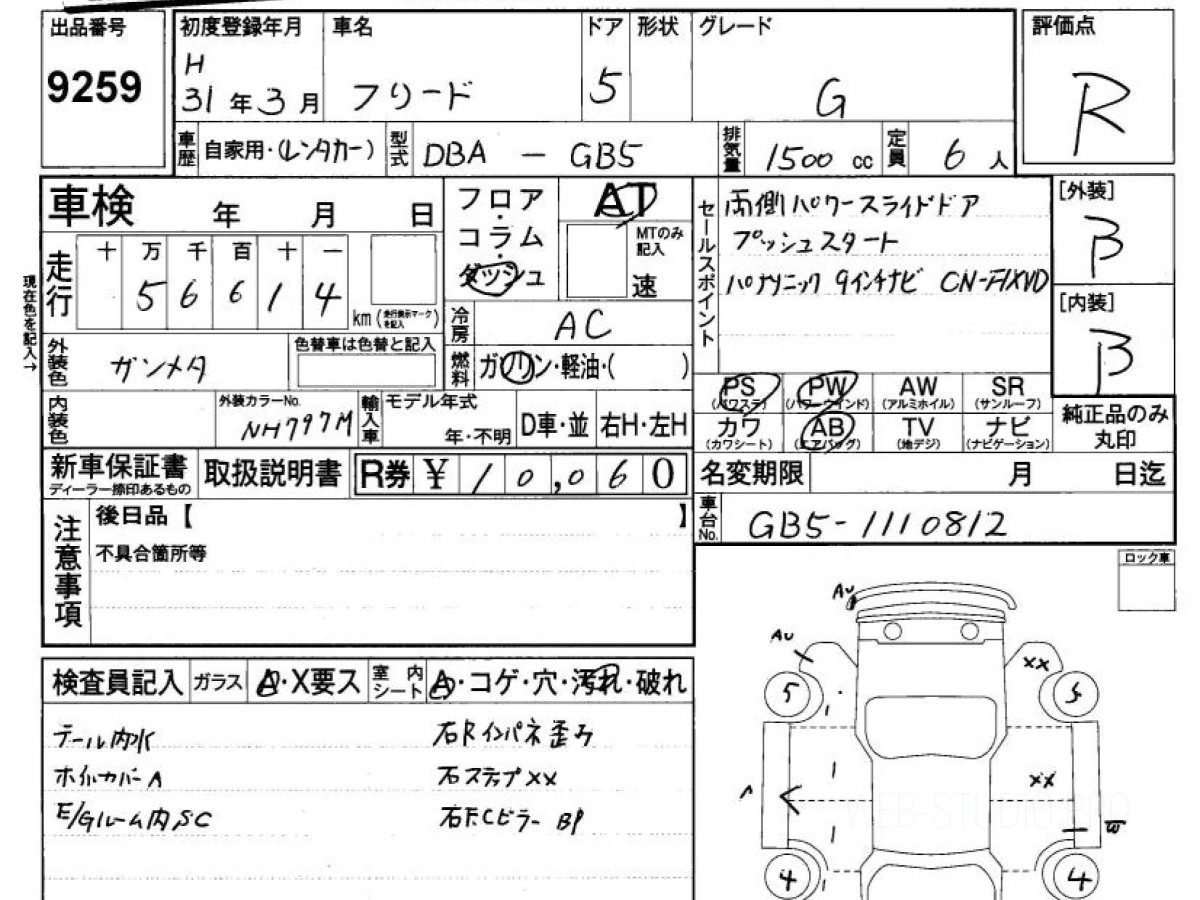 出品番号
9259
初度登録年月
H
31年3月
車名
フリード
ドア
5
形状
グレード
G
評価点
R
車歴
自家用・(レンタカー)
型式
DBA - GB5
排気量
1500 cc
定員
6人
車検 年 月 日
フロア・コラム・ダッシュ
AT
MTのみ記入
速
セールスポイント
両側パワースライドドア
プッシュスタート
パナソニック 9インチナビ CN-F1XVD
[外装]
B
[内装]
B
現在色を記入→
走行
十 万 千 百 十 一
5 6 6 1 4
km (走行表示マークを記入)
冷房
AC
燃料
ガソリン・軽油・( )
外装色
ガンメタ
色替車は色替と記入
内装色
外装カラーNo.
NH797M
輸入車
モデル年式
年・不明
D車・並
右H・左H
PS
(パワステ)
PW
(パワーウインド)
AW
(アルミホイル)
SR
(サンルーフ)
カワ
(カワシート)
AB
(エアバッグ)
TV
(地デジ)
ナビ
(ナビゲーション)
純正品のみ
丸印
新車保証書
ディーラー捺印あるもの
取扱説明書
R券 ¥ 10,060
名変期限 月 日迄
車台No.
GB5-1110812
注意事項
後日品【 】
不具合箇所等
ロック車
検査員記入
ガラス
A・X要ス
室内シート
A・コゲ・穴・汚れ・破れ
テール内水
ホイルカバーA
E/Gルーム内SC
右Rインパネ歪み
右ステップXX
右F.CピラーBP
AU
AU
XX
5
5
XX
W
4
4
WEB-STUDIO.PRO